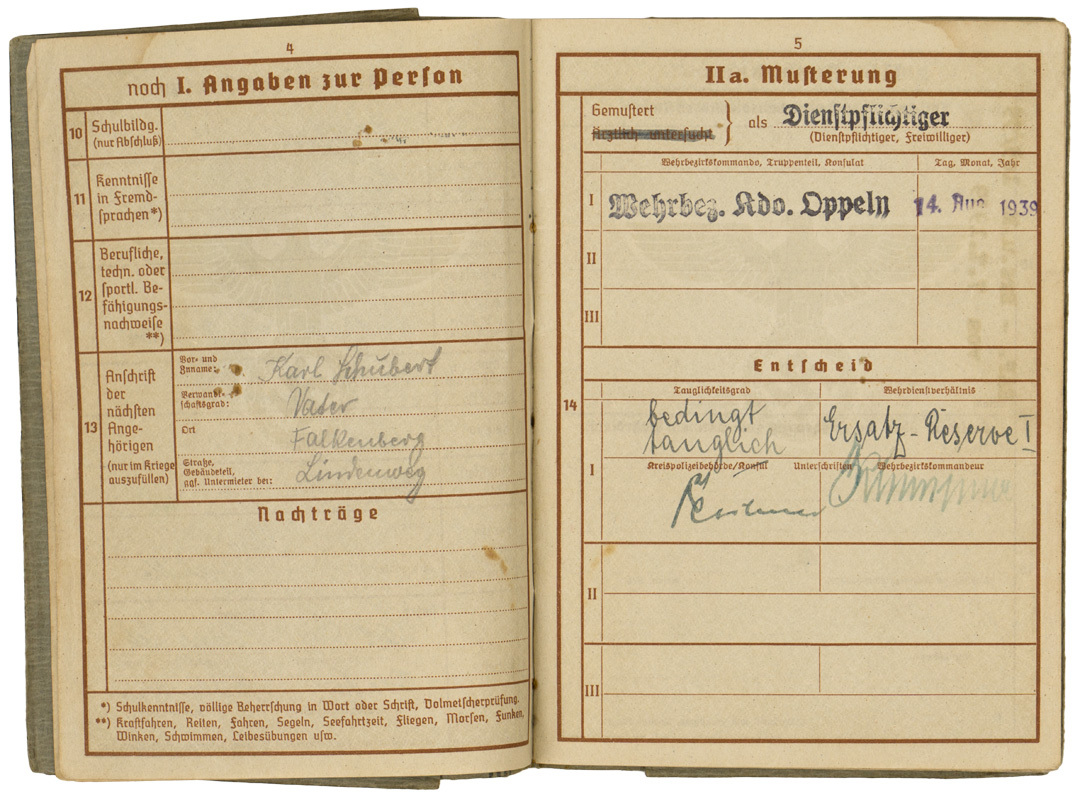 4
noch I. Angaben zur Person
10 Schulbildg.
(nur Abschluß)
11 Kenntnisse
in Fremd-
sprachen*)
12 Berufliche,
techn. oder
sportl. Be-
fähigungs-
nachweise
**)
13 Anschrift
der
nächsten
Ange-
hörigen
(nur im Kriege
auszufüllen)
Vor- und
Zuname: Karl Schubert
Verwandt-
schaftsgrad: Vater
Ort Falkenberg
Straße,
Gebäudeteil,
ggf. Untermieter bei: Lindenweg
Nachträge
*) Schulkenntnisse, völlige Beherrschung in Wort oder Schrift, Dolmetscherprüfung.
**) Kraftfahren, Reiten, Fahren, Segeln, Seefahrtzeit, Fliegen, Morsen, Funken,
Winken, Schwimmen, Leibesübungen usw.
5
IIa. Musterung
Gemustert
Ärztlich untersucht } als Dienstpflichtiger
(Dienstpflichtiger, Freiwilliger)
Wehrbezirkskommando, Truppenteil, Konsulat Tag, Monat, Jahr
I Wehrbez. Kdo. Oppeln 14. Aug. 1939
II
III
Entscheid
14
Tauglichkeitsgrad Wehrdienstverhältnis
bedingt
tauglich Ersatz-Reserve I
I Kreispolizeibehörde/Konsul Unterschriften Wehrbezirkskommandeur
II
III